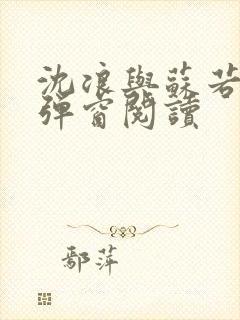 沈浪與蘇若
彈窗閱讀
鄢萍